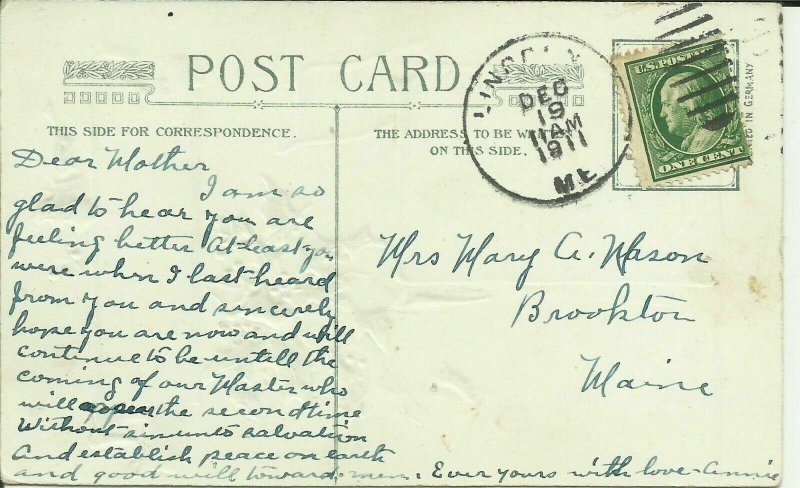 POST CARD
THIS SIDE FOR CORRESPONDENCE.
THE ADDRESS TO BE
ON THIS SIDE.
DEC
19
11 AM
1911
ME
U.S. POSTAGE
ONE CENT
IN GERMANY
Dear Mother
I am so
glad to hear you are
feeling better At least you
were when I last heard
from you and sincerely
hope you are now and will
continue to be untill the
coming of our Master who
will appear the second time
Without sin unto salvation
and establish peace on earth
and good will toward men. Ever yours with love - Annie
Mrs Mary A. Mason
Brookton
Maine